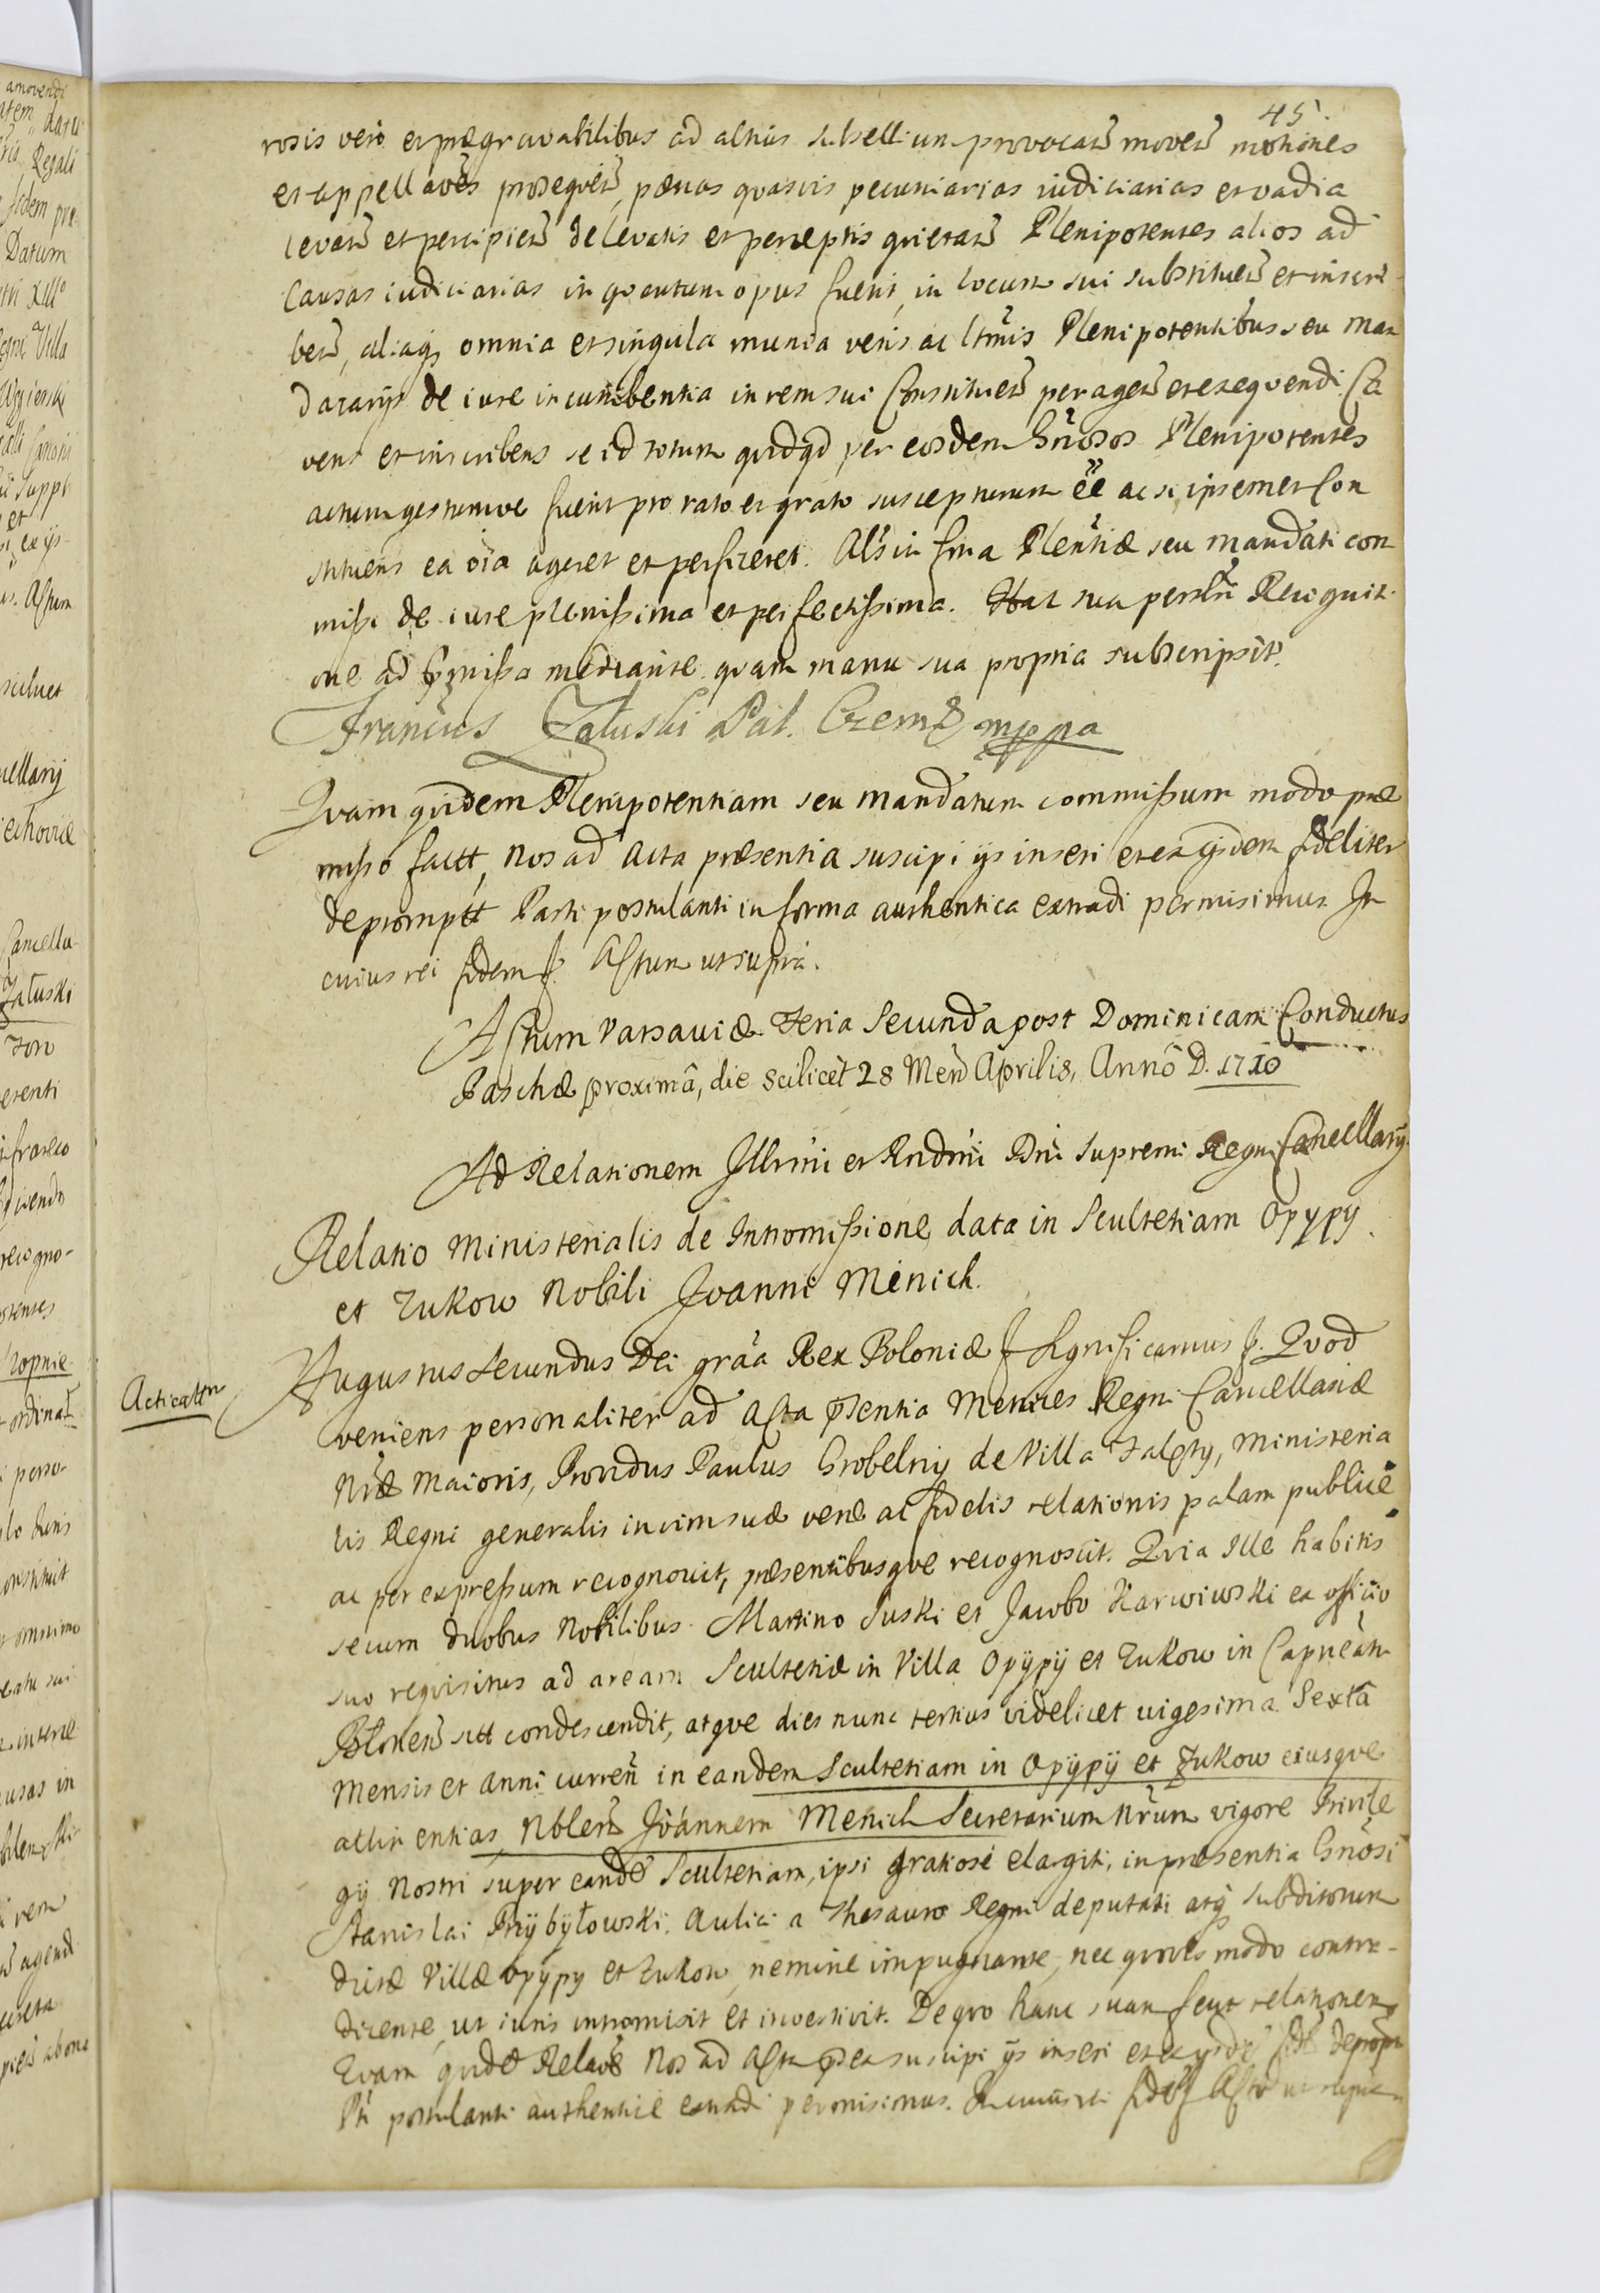 45.
rosis vero et prægravabilibus ad altius subsellium provocañ moveñ motiones
et appellaões prosequeñ, pænas quasvis pecuniarias iudiciarias et vadia
levañ et percipieñ de levatis et perceptis quietañ Plenipotentes alios ad
Causas iudiciarias in quantum opus fuerit, in locum sui substitueñ et inscri-
beñ, aliaqȝ omnia et singula munia veris ac ltm̃is Plenipotentibus seu Man
datarijs de iure incumbentia in rem sui Constitueñ perageñ et exequendi. Ca
vens et inscribens se id totum quidqd per eosdem Gñosos Plenipotentes
actum gestumve fuerit pro rato et grato suscepturum ẽe ac si ipsemet Con
stituens ea oĩa ageret et perficeret. Als in forma Plen̄tiæ seu Mandati com
missi de iure plenissima et perfectissima. Hac sua persn̄li Recognit.
one ad præmissa mediante quam manu sua propria subscripsit.
Francus Załuski Pal. Czerñ mppa
Quam quidem Plenipotentiam seu Mandatum commissum modo præ
misso factt, Nos ad Acta præsentia suscipi ijs inseri et ex ijsdem fideliter
depromptt Parti postulanti in forma authentica extradi permisimus. In
cuius rei fidem ꝭ. Actum ut supra.
Actum Varsaviæ Feria Secunda post Dominicam Conductus
Paschæ proximâ, die scilicèt 28 Meñ Aprilis, Annô D. 1710
Ad Relationem Illrm̃i et Rndm̃i Dn̄i Supremi Regni Cancellarij.
Relatio Ministerialis de Intromissione data in Scultetiam Opypy
et Zukow Nobili Joanni Menich.
Acticattr
Augustus Secundus Dei grã̃a Rex Poloniæ ꝭ Significamus ꝭ. Quod
veniens personaliter ad Acta p̃sentia Metrices Regni Cancellariæ
Nr̃æ Maioris, Providus Paulus Grobelny de Villa Falęty, Ministeria
lis Regni generalis in vim suæ veræ ac fidelis relationis palam publicè
ac per expressum recognovit, præsentibusque recognoscit. Quia Ille habitis
secum duobus Nobilibus Martino Suski et Jacobo Karwowski ex officio
suo requisitus ad aream Scultetiæ in Villa Opÿpÿ et Zukow in Capneatu
Bloneñ sitt condescendit, atque dies nunc tertius videlicet vigesima Sextâ
Mensis et Anni curreñ in eandem Scultetiam in Opÿpÿ et Zukow eiusque
attinentias, Nbleñ Joannem Menich Secretarium Nr̃um vigore Privile
gij Nostri super eandẽ Scultetiam, ipsi gratiosè elargiti, in præsentia Gñosi
Stanislai Przybyłowski Aulici a Thesauro Regni deputati atqȝ subditorum
dictæ Villæ Opypy et Zukow, nemine impugnante, nec quovis modo contra-
dicente, ut iuris intromisit et investivit. De quo hanc suam fecit relationem
Quam quidẽ Relaõẽ Nos ad Acta p̃sea suscipi ijs inseri et ex ijsdẽ fidlr depromp
Pti postulanti authenticè extradi permisimus. In cuius rei fidẽ ꝭ Actũ ut supra